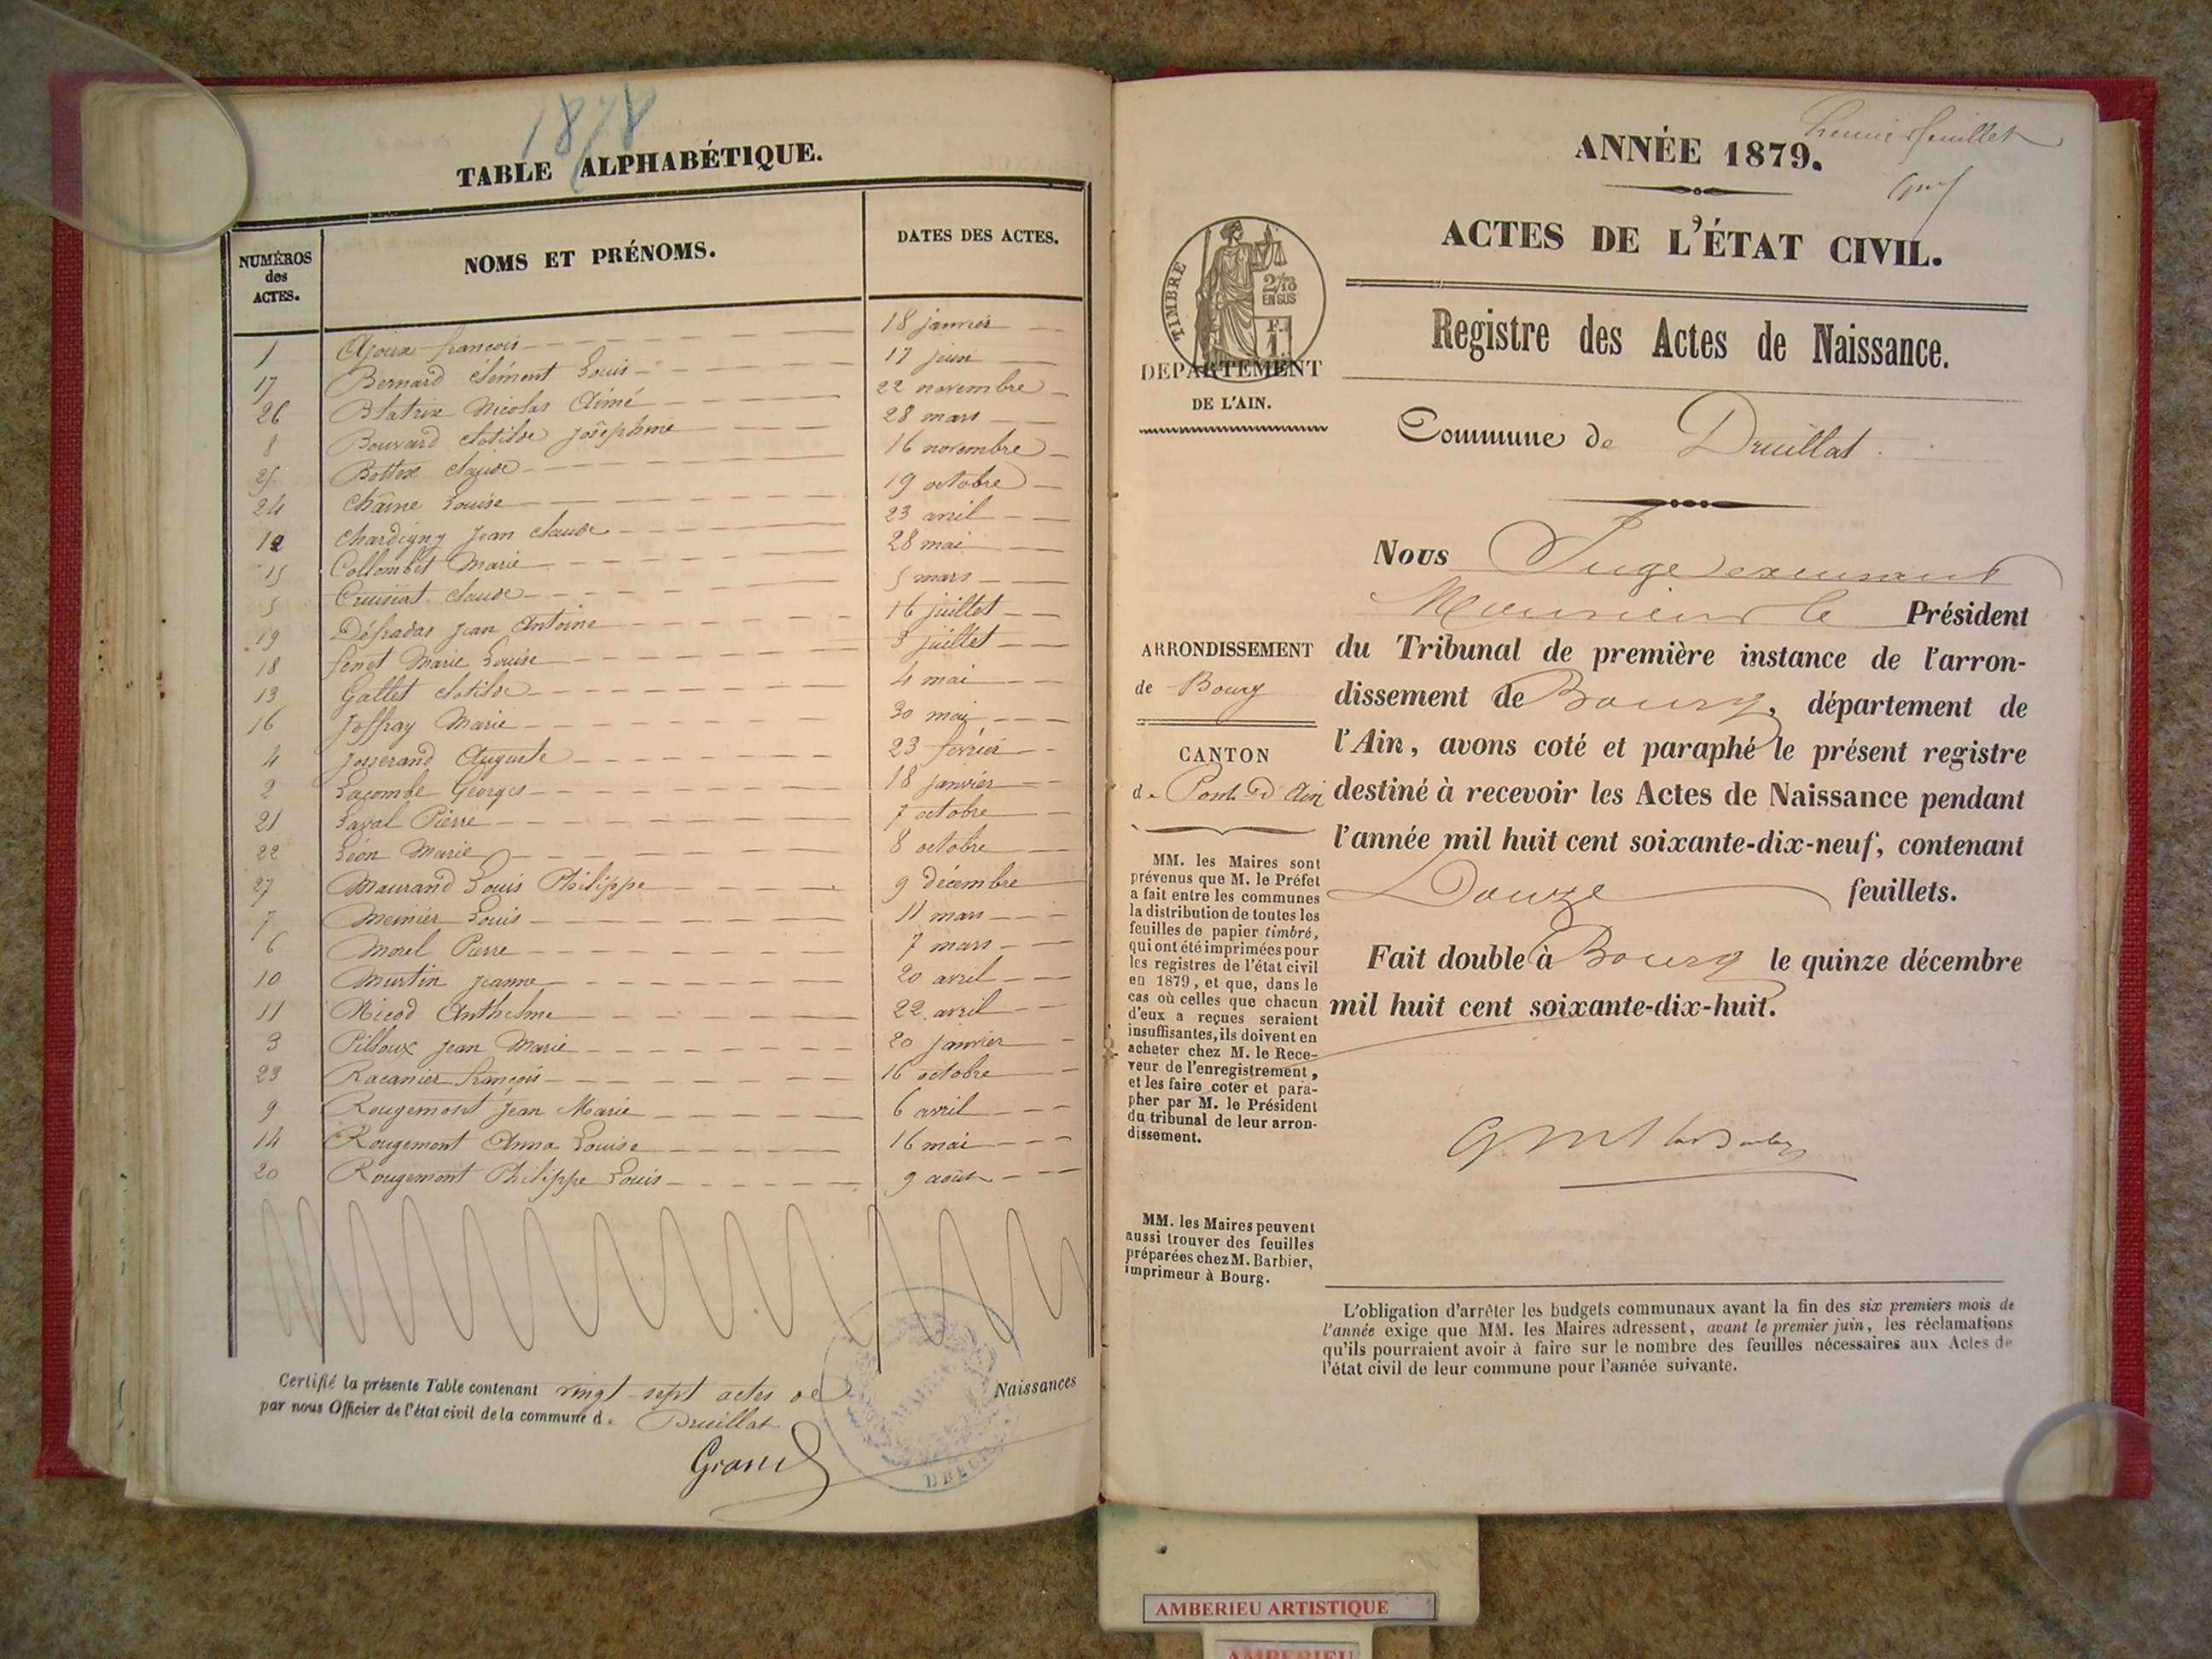 1878
TABLE ALPHABÉTIQUE.
NUMÉROS des ACTES. NOMS ET PRÉNOMS. DATES DES ACTES.
1 Ajoux françois 18 janvier
17 Bernard Clément Louis 17 juin
26 Blatrix Nicolas Aimé 22 novembre
8 Bouvard Clotilde Joséphine 28 mars
25 Bottex Claude 16 novembre
24 Chaîne Louise 19 octobre
12 Chardigny Jean Claude 23 avril
15 Collombet Marie 28 mai
5 Cruisiat Claude 5 mars
19 Défradas Jean Antoine 16 juillet
18 fenet Marie Louise 3 juillet
13 Gallet Clotilde 4 mai
16 Joffray Marie 30 mai
4 Josserand Auguste 23 février
2 Lacombe Georges 18 janvier
21 Laval Pierre 7 octobre
22 Léon Marie 8 octobre
27 Maurand Louis Philippe 9 décembre
7 Meinier Louis 11 mars
6 Morel Pierre 7 mars
10 Mustin Jeanne 20 avril
11 Nicod Anthelme 22 avril
3 Pilloux Jean Marie 20 janvier
23 Racanier François 16 octobre
9 Rougemont Jean Marie 6 avril
14 Rougemont Anna Louise 16 mai
20 Rougemont Philippe Louis 9 août
Certifié la présente Table contenant vingt sept actes de Naissances
par nous Officier de l'état civil de la commune d. Druillat
Grand
MAIRIE
Premier feuillet
ANNÉE 1879.
ACTES DE L'ÉTAT CIVIL.
TIMBRE
2/10
EN SUS
F.
1
Registre des Actes de Naissance.
DEPARTEMENT
DE L'AIN.
Commune de Druillat.
Nous Juge
Monsieur le Président
du Tribunal de première instance de l'arron-
dissement de Bourg, département de
l'Ain, avons coté et paraphé le présent registre
destiné à recevoir les Actes de Naissance pendant
l'année mil huit cent soixante-dix-neuf, contenant
Douze feuillets.
Fait double à Bourg le quinze décembre
mil huit cent soixante-dix-huit.
ARRONDISSEMENT
de Bourg
CANTON
d. Pont d'Ain
MM. les Maires sont
prévenus que M. le Préfet
a fait entre les communes
la distribution de toutes les
feuilles de papier timbré,
qui ont été imprimées pour
les registres de l'état civil
en 1879, et que, dans le
cas où celles que chacun
d'eux a reçues seraient
insuffisantes, ils doivent en
acheter chez M. le Rece-
veur de l'enregistrement,
et les faire coter et para-
pher par M. le Président
du tribunal de leur arron-
dissement.
MM. les Maires peuvent
aussi trouver des feuilles
préparées chez M. Barbier,
imprimeur à Bourg.
L'obligation d'arrêter les budgets communaux avant la fin des six premiers mois de
l'année exige que MM. les Maires adressent, avant le premier juin, les réclamations
qu'ils pourraient avoir à faire sur le nombre des feuilles nécessaires aux Actes de
l'état civil de leur commune pour l'année suivante.
AMBERIEU ARTISTIQUE
AMBERIEU